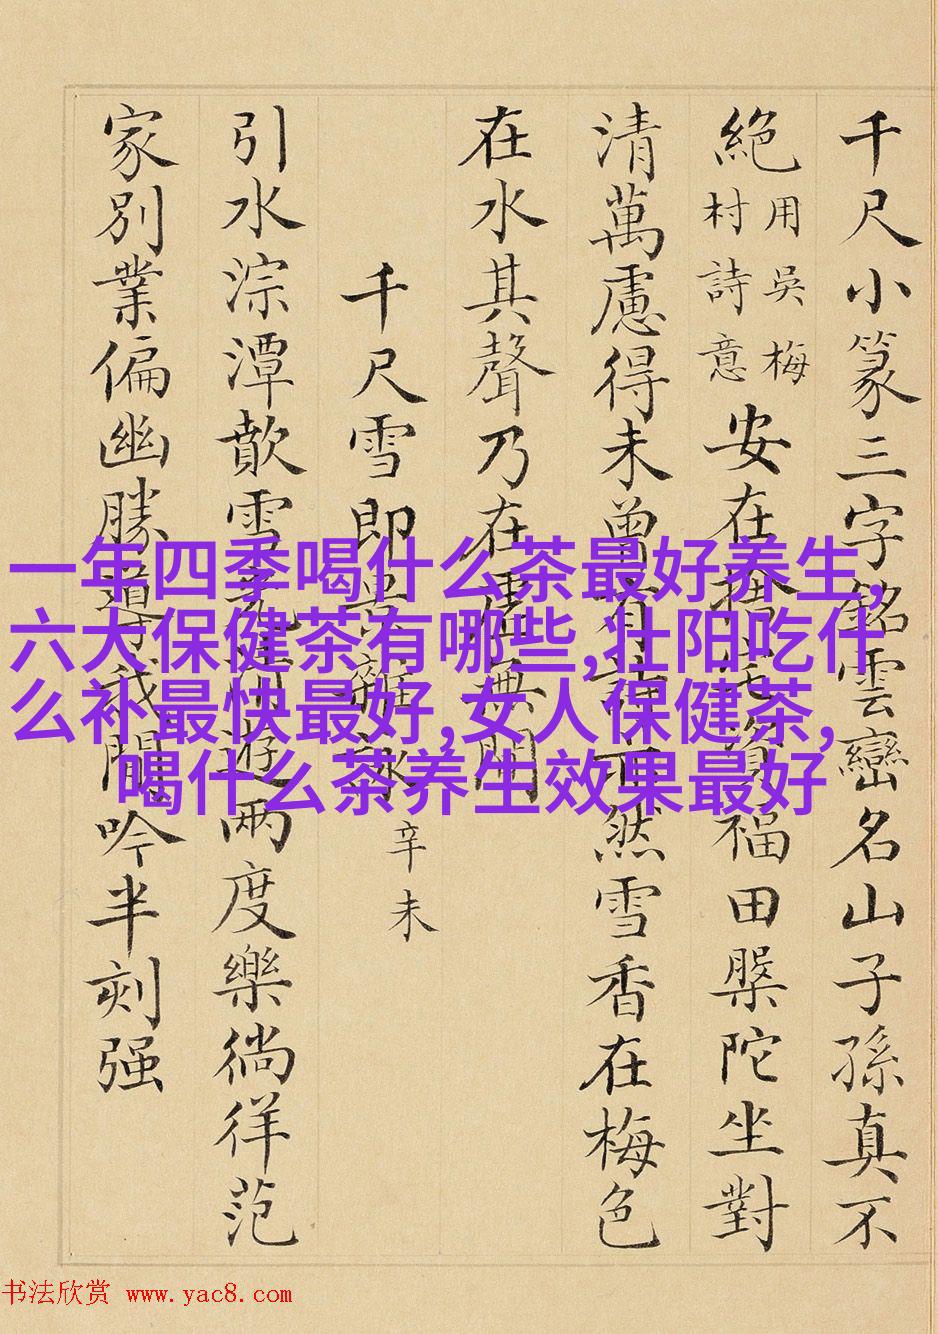 千尺小篆三字銘雲巒名山子孫真不
絕用吳梅村詩意安在福田槃陀坐對
清萬慮得未曾有然雪香在梅色
在水其聲乃在虛無間
千尺雪即景雜詠辛未
引水淙潭歕雪遊兩度樂徜徉范
家別業偏幽勝導我閒吟半刻强
一年四季喝什么茶最好养生,
六大保健茶有哪些,壮阳吃什
么补最快最好,女人保健茶,
喝什么茶养生效果最好
书法欣赏 www.yac8.com